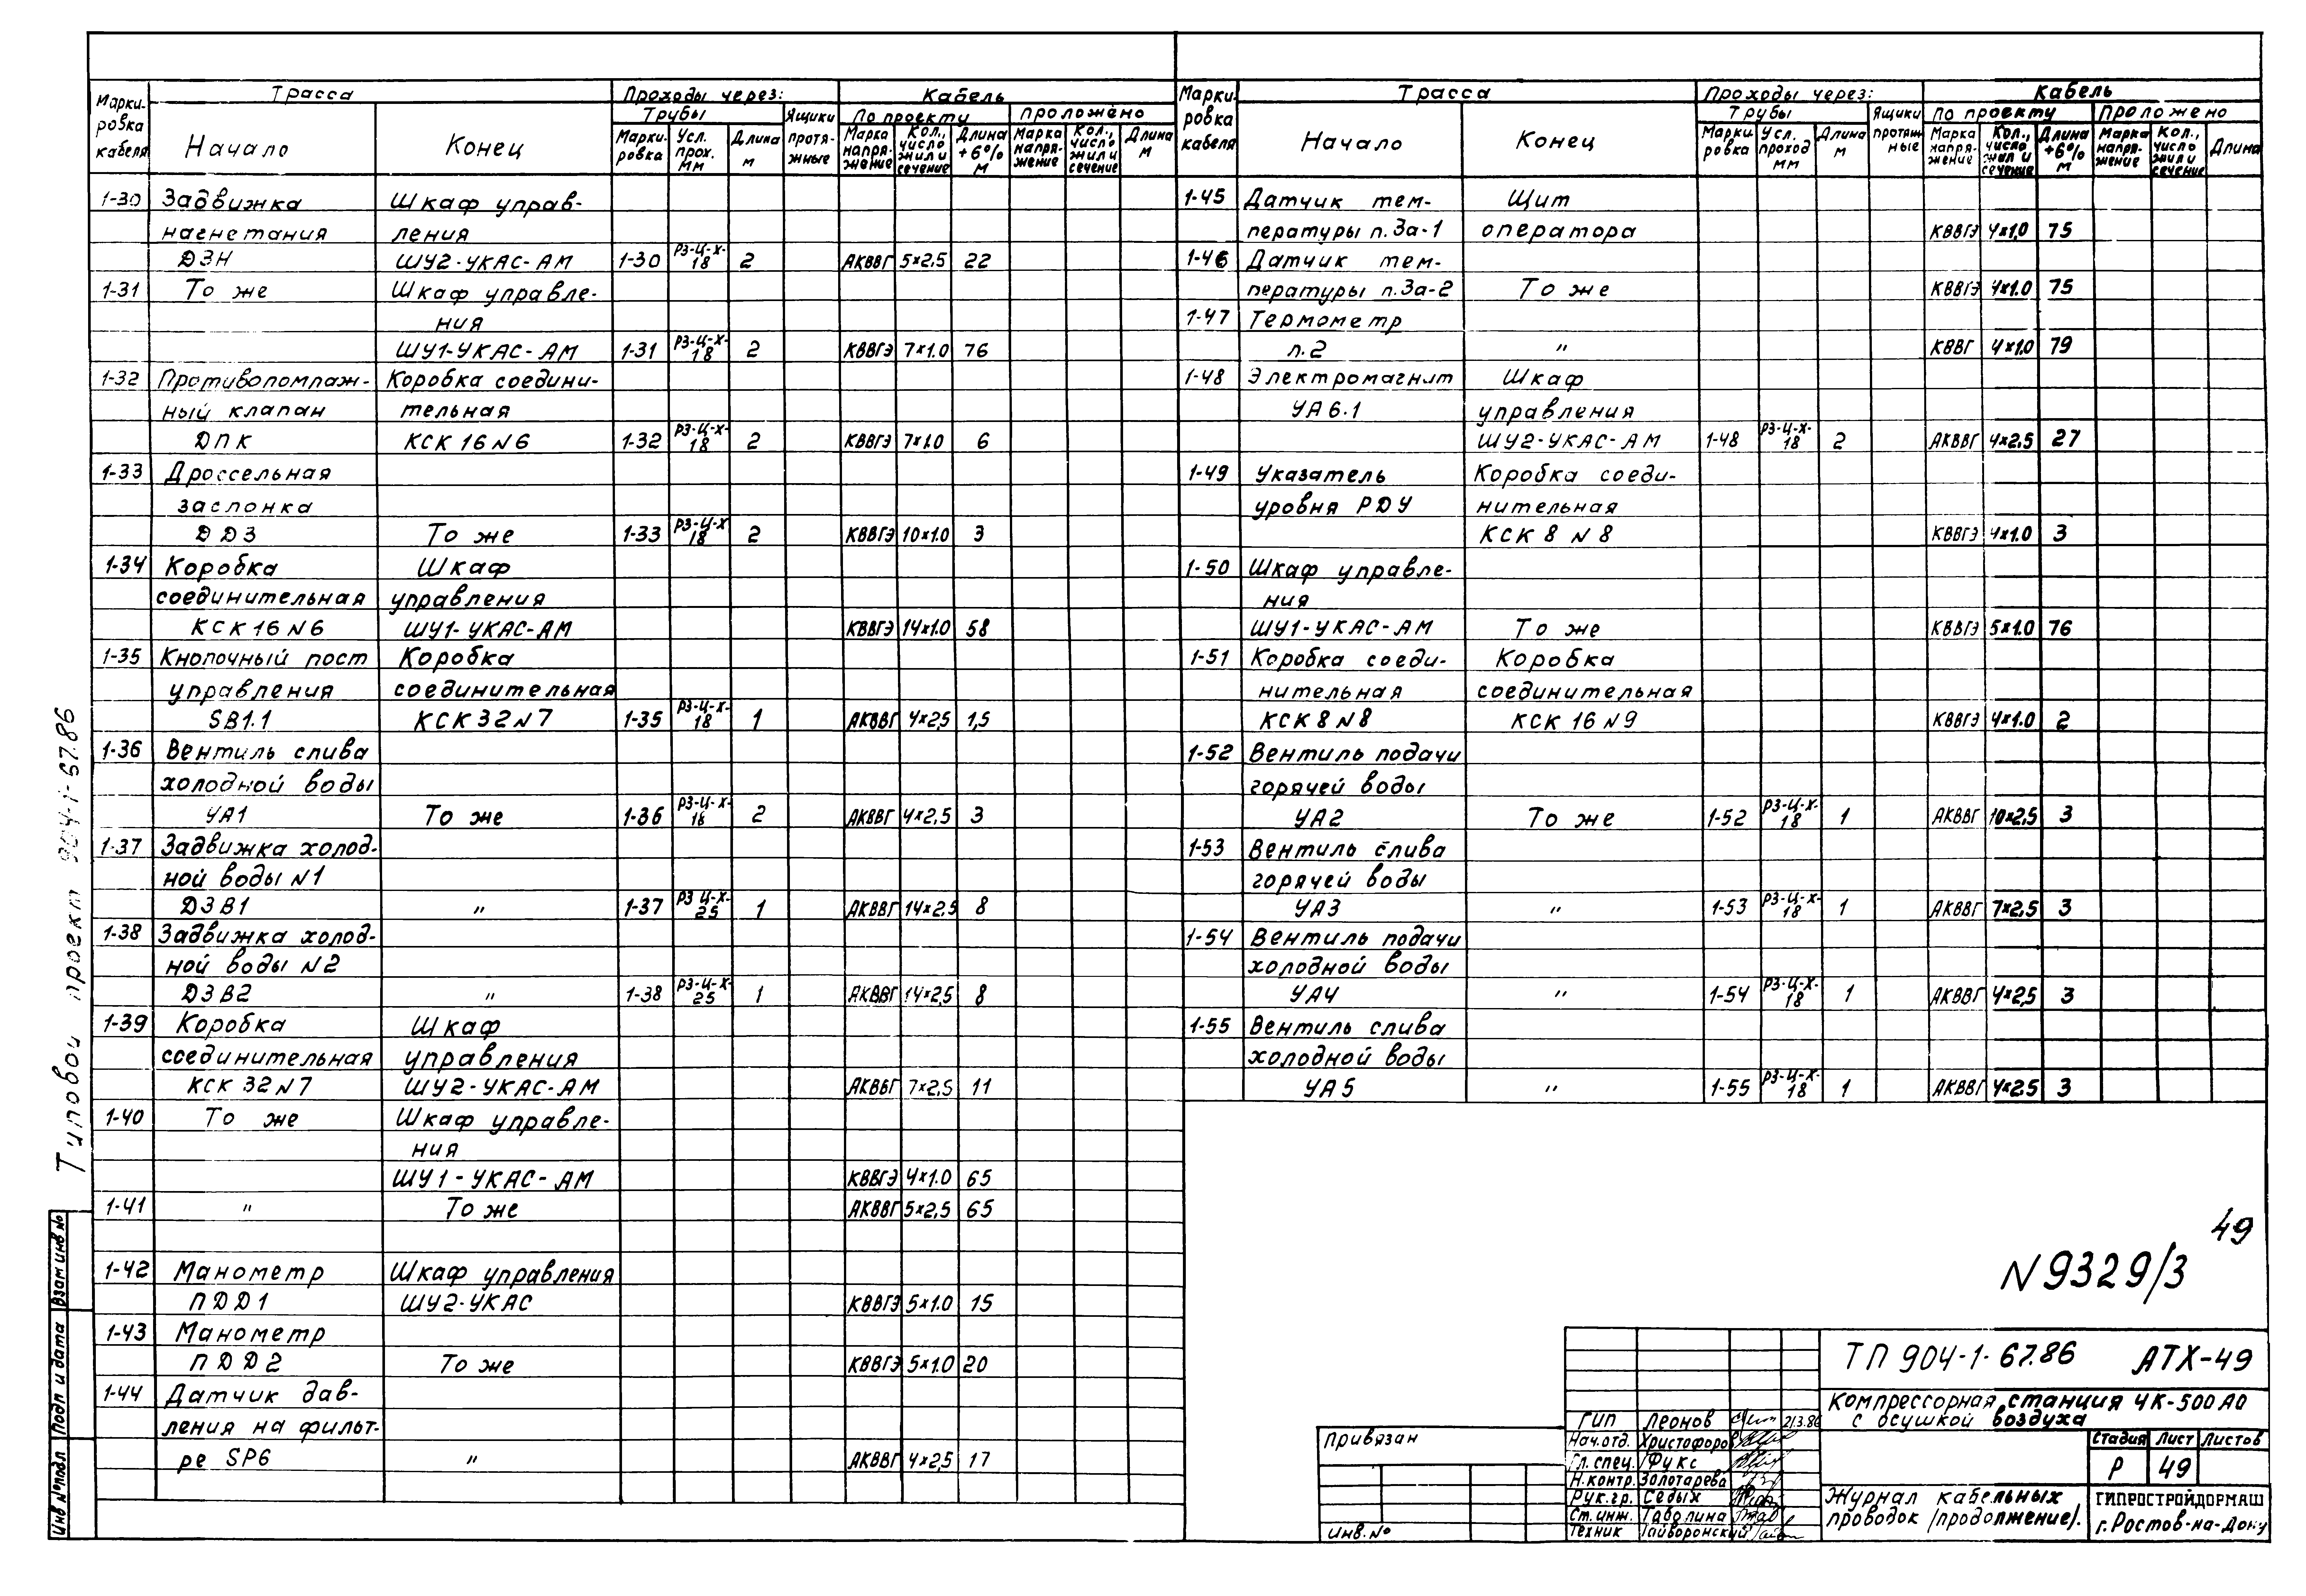 Типовой проект 904-1-67.86
Взам инв №
Подп и дата
Инв № подл
Марки-ровка кабеля | Трасса | Проходы через: | Кабель
Начало | Конец | Трубы | Ящики протя-жные | По проекту | проложено
Марки-ровка | Усл. прох. мм | Длина м | Марка напря-жение | Кол., число жил и сечение | Длина +6% м | Марка напря-жение | Кол., число жил и сечение | Длина м
1-30 Задвижка Шкаф управ-
нагнетания ления
ДЗН ШУ2-УКАС-АМ 1-30 РЗ-Ц-Х-18 2 АКВВГ 5х2,5 22
1-31 То же Шкаф управле-
ния
ШУ1-УКАС-АМ 1-31 РЗ-Ц-Х-18 2 КВВГЭ 7х1.0 76
1-32 Противопомпаж- Коробка соедини-
ный клапан тельная
ДПК КСК 16 N6 1-32 РЗ-Ц-Х-18 2 КВВГЭ 7х1.0 6
1-33 Дроссельная
заслонка
ДДЗ То же 1-33 РЗ-Ц-Х 18 2 КВВГЭ 10х1.0 3
1-34 Коробка Шкаф
соединительная управления
КСК 16 N6 ШУ1-УКАС-АМ КВВГЭ 14х1.0 58
1-35 Кнопочный пост Коробка
управления соединительная
SB1.1 КСК 32 N7 1-35 РЗ-Ц-Х-18 1 АКВВГ 4х2,5 1,5
1-36 Вентиль слива
холодной воды
УА1 То же 1-36 РЗ-Ц-Х-18 2 АКВВГ 4х2,5 3
1-37 Задвижка холод-
ной воды N1
ДЗВ1 " 1-37 РЗ Ц-Х-25 1 АКВВГ 14х2,5 8
1-38 Задвижка холод-
ной воды N2
ДЗВ2 " 1-38 РЗ-Ц-Х-25 1 АКВВГ 14х2,5 8
1-39 Коробка Шкаф
соединительная управления
КСК 32 N7 ШУ2-УКАС-АМ АКВВГ 7х2,5 11
1-40 То же Шкаф управле-
ния
ШУ1-УКАС-АМ КВВГЭ 4х1.0 65
1-41 " То же АКВВГ 5х2,5 65
1-42 Манометр Шкаф управления
ПДД1 ШУ2-УКАС КВВГЭ 5х1.0 15
1-43 Манометр
ПДД2 То же КВВГЭ 5х1.0 20
1-44 Датчик дав-
ления на фильт-
ре SP6 " АКВВГ 4х2,5 17
Марки-ровка кабеля | Трасса | Проходы через: | Кабель
Начало | Конец | Трубы | Ящики протяж-ные | По проекту | Проложено
Марки ровка | Усл. проход мм | Длина м | Марка напря-жение | Кол., число жил и сечение | Длина +6% м | Марка напря-жение | Кол., число жил и сечение | Длина
1-45 Датчик тем- Щит
пературы п.3а-1 оператора КВВГЭ 4х1,0 75
1-46 Датчик тем-
пературы п.3а-2 То же КВВГЭ 4х1.0 75
1-47 Термометр
п.2 " КВВГ 4х1.0 79
1-48 Электромагнит Шкаф
УА6.1 управления
ШУ2-УКАС-АМ 1-48 РЗ-Ц-Х-18 2 АКВВГ 4х2,5 27
1-49 Указатель Коробка соеди-
уровня РДУ нительная
КСК 8 N 8 КВВГЭ 4х1.0 3
1-50 Шкаф управле-
ния
ШУ1-УКАС-АМ То же КВВГЭ 5х1.0 76
1-51 Коробка соеди- Коробка
нительная соединительная
КСК 8 N8 КСК 16 N9 КВВГЭ 4х1.0 2
1-52 Вентиль подачи
горячей воды
УА2 То же 1-52 РЗ-Ц-Х-18 1 АКВВГ 10х2,5 3
1-53 Вентиль слива
горячей воды
УА3 " 1-53 РЗ-Ц-Х-18 1 АКВВГ 7х2,5 3
1-54 Вентиль подачи
холодной воды
УА4 " 1-54 РЗ-Ц-Х-18 1 АКВВГ 4х2,5 3
1-55 Вентиль слива
холодной воды
УА5 " 1-55 РЗ-Ц-Х-18 1 АКВВГ 4х2,5 3
49
N 9329/3
ТП 904-1-67.86 АТХ-49
Компрессорная станция 4К-500А0
с осушкой воздуха
ГИП Леонов 21.3.86
Нач.отд. Христофоров
Гл.спец. Фукс
Н.контр. Золотарева
Рук.гр. Седых
Ст.инж. Таволина
Техник Гайворонский
Стадия Лист Листов
Р 49
Журнал кабельных
проводок (продолжение).
ГИПРОСТРОЙДОРМАШ
г.Ростов-на-Дону
Привязан
Инв.№